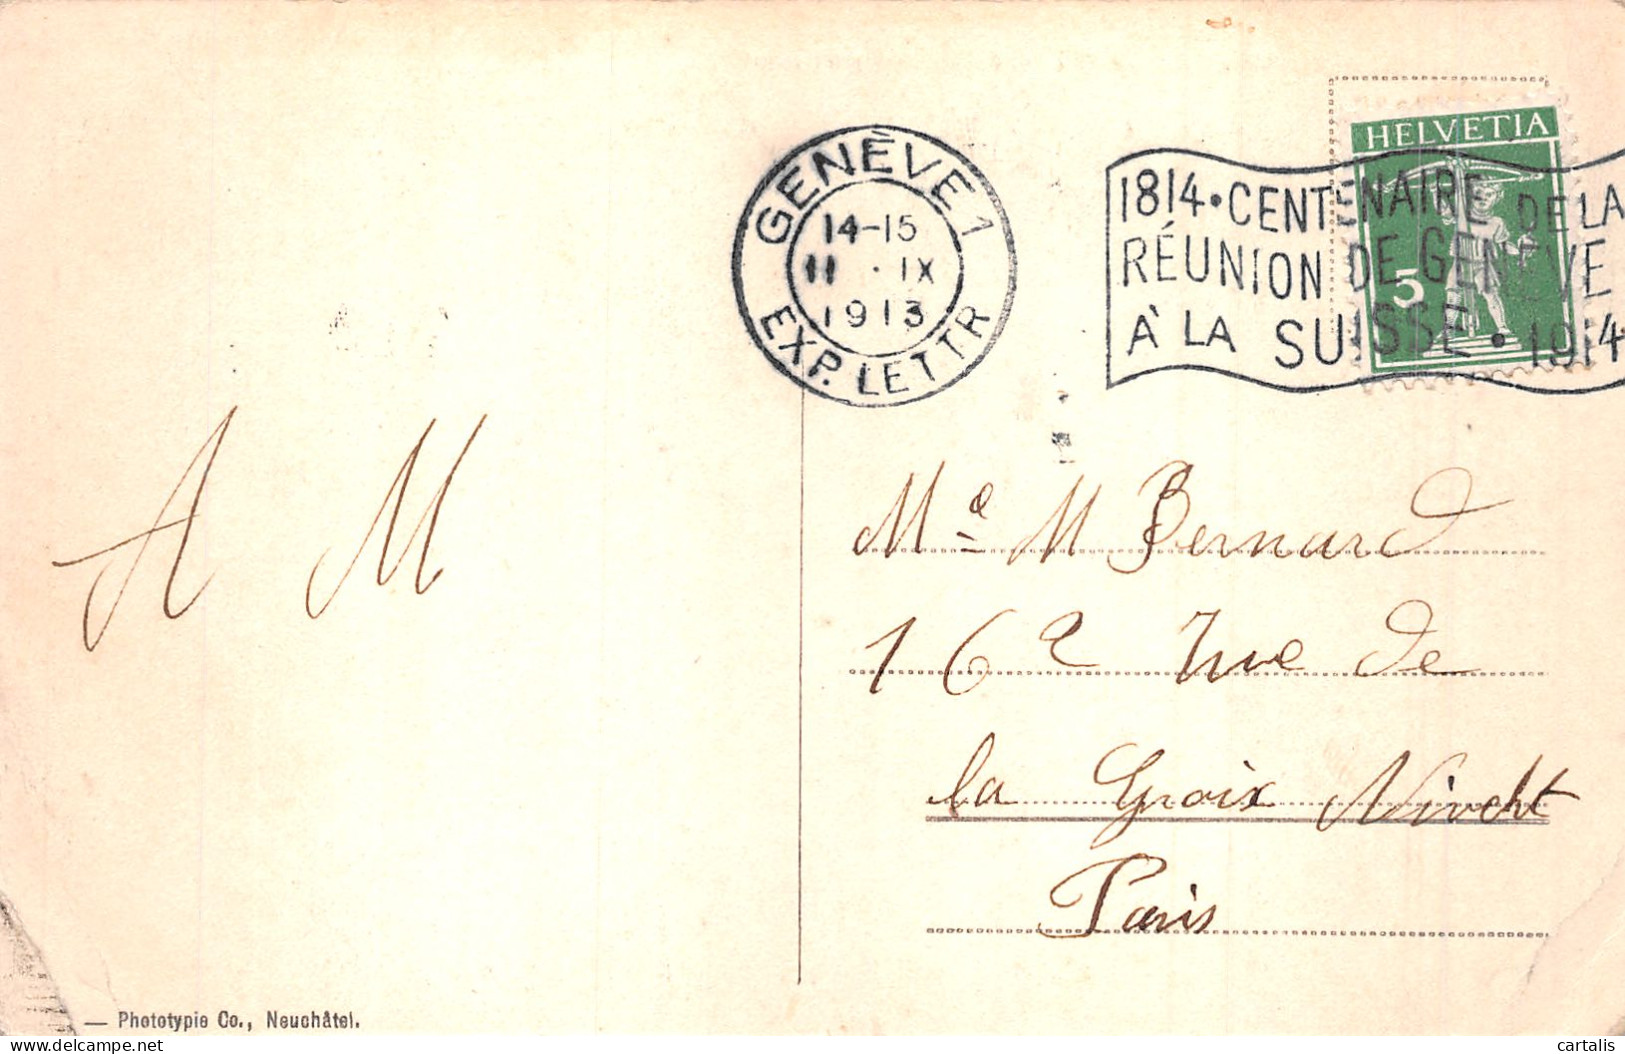 GENÈVE 1
14-15
11 · IX
1913
EXP. LETTR
HELVETIA
5
1814 · CENTENAIRE DE LA
RÉUNION DE GENÈVE
À LA SUISSE · 1914
A M
Me M Bernard
162 rue de
la Croix Nivert
Paris
— Phototypie Co., Neuchâtel.
delcampe.net
cartalis